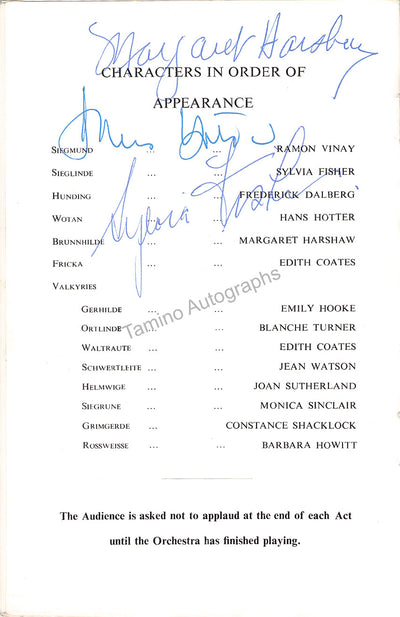 Margaret Harshaw
CHARACTERS IN ORDER OF
APPEARANCE
Hans Hotter
SIEGMUND ... ... RAMON VINAY
SIEGLINDE ... ... SYLVIA FISHER
HUNDING ... FREDERICK DALBERG
WOTAN ... ... HANS HOTTER
Sylvia Fisher
BRUNNHILDE ... MARGARET HARSHAW
FRICKA ... ... EDITH COATES
VALKYRIES
GERHILDE ... ... EMILY HOOKE
ORTLINDE ... BLANCHE TURNER
WALTRAUTE ... ... EDITH COATES
SCHWERTLEITE ... ... JEAN WATSON
HELMWIGE ... ... JOAN SUTHERLAND
SIEGRUNE ... ... MONICA SINCLAIR
GRIMGERDE ... CONSTANCE SHACKLOCK
ROSSWEISSE ... ... BARBARA HOWITT
The Audience is asked not to applaud at the end of each Act
until the Orchestra has finished playing.
Tamino Autographs